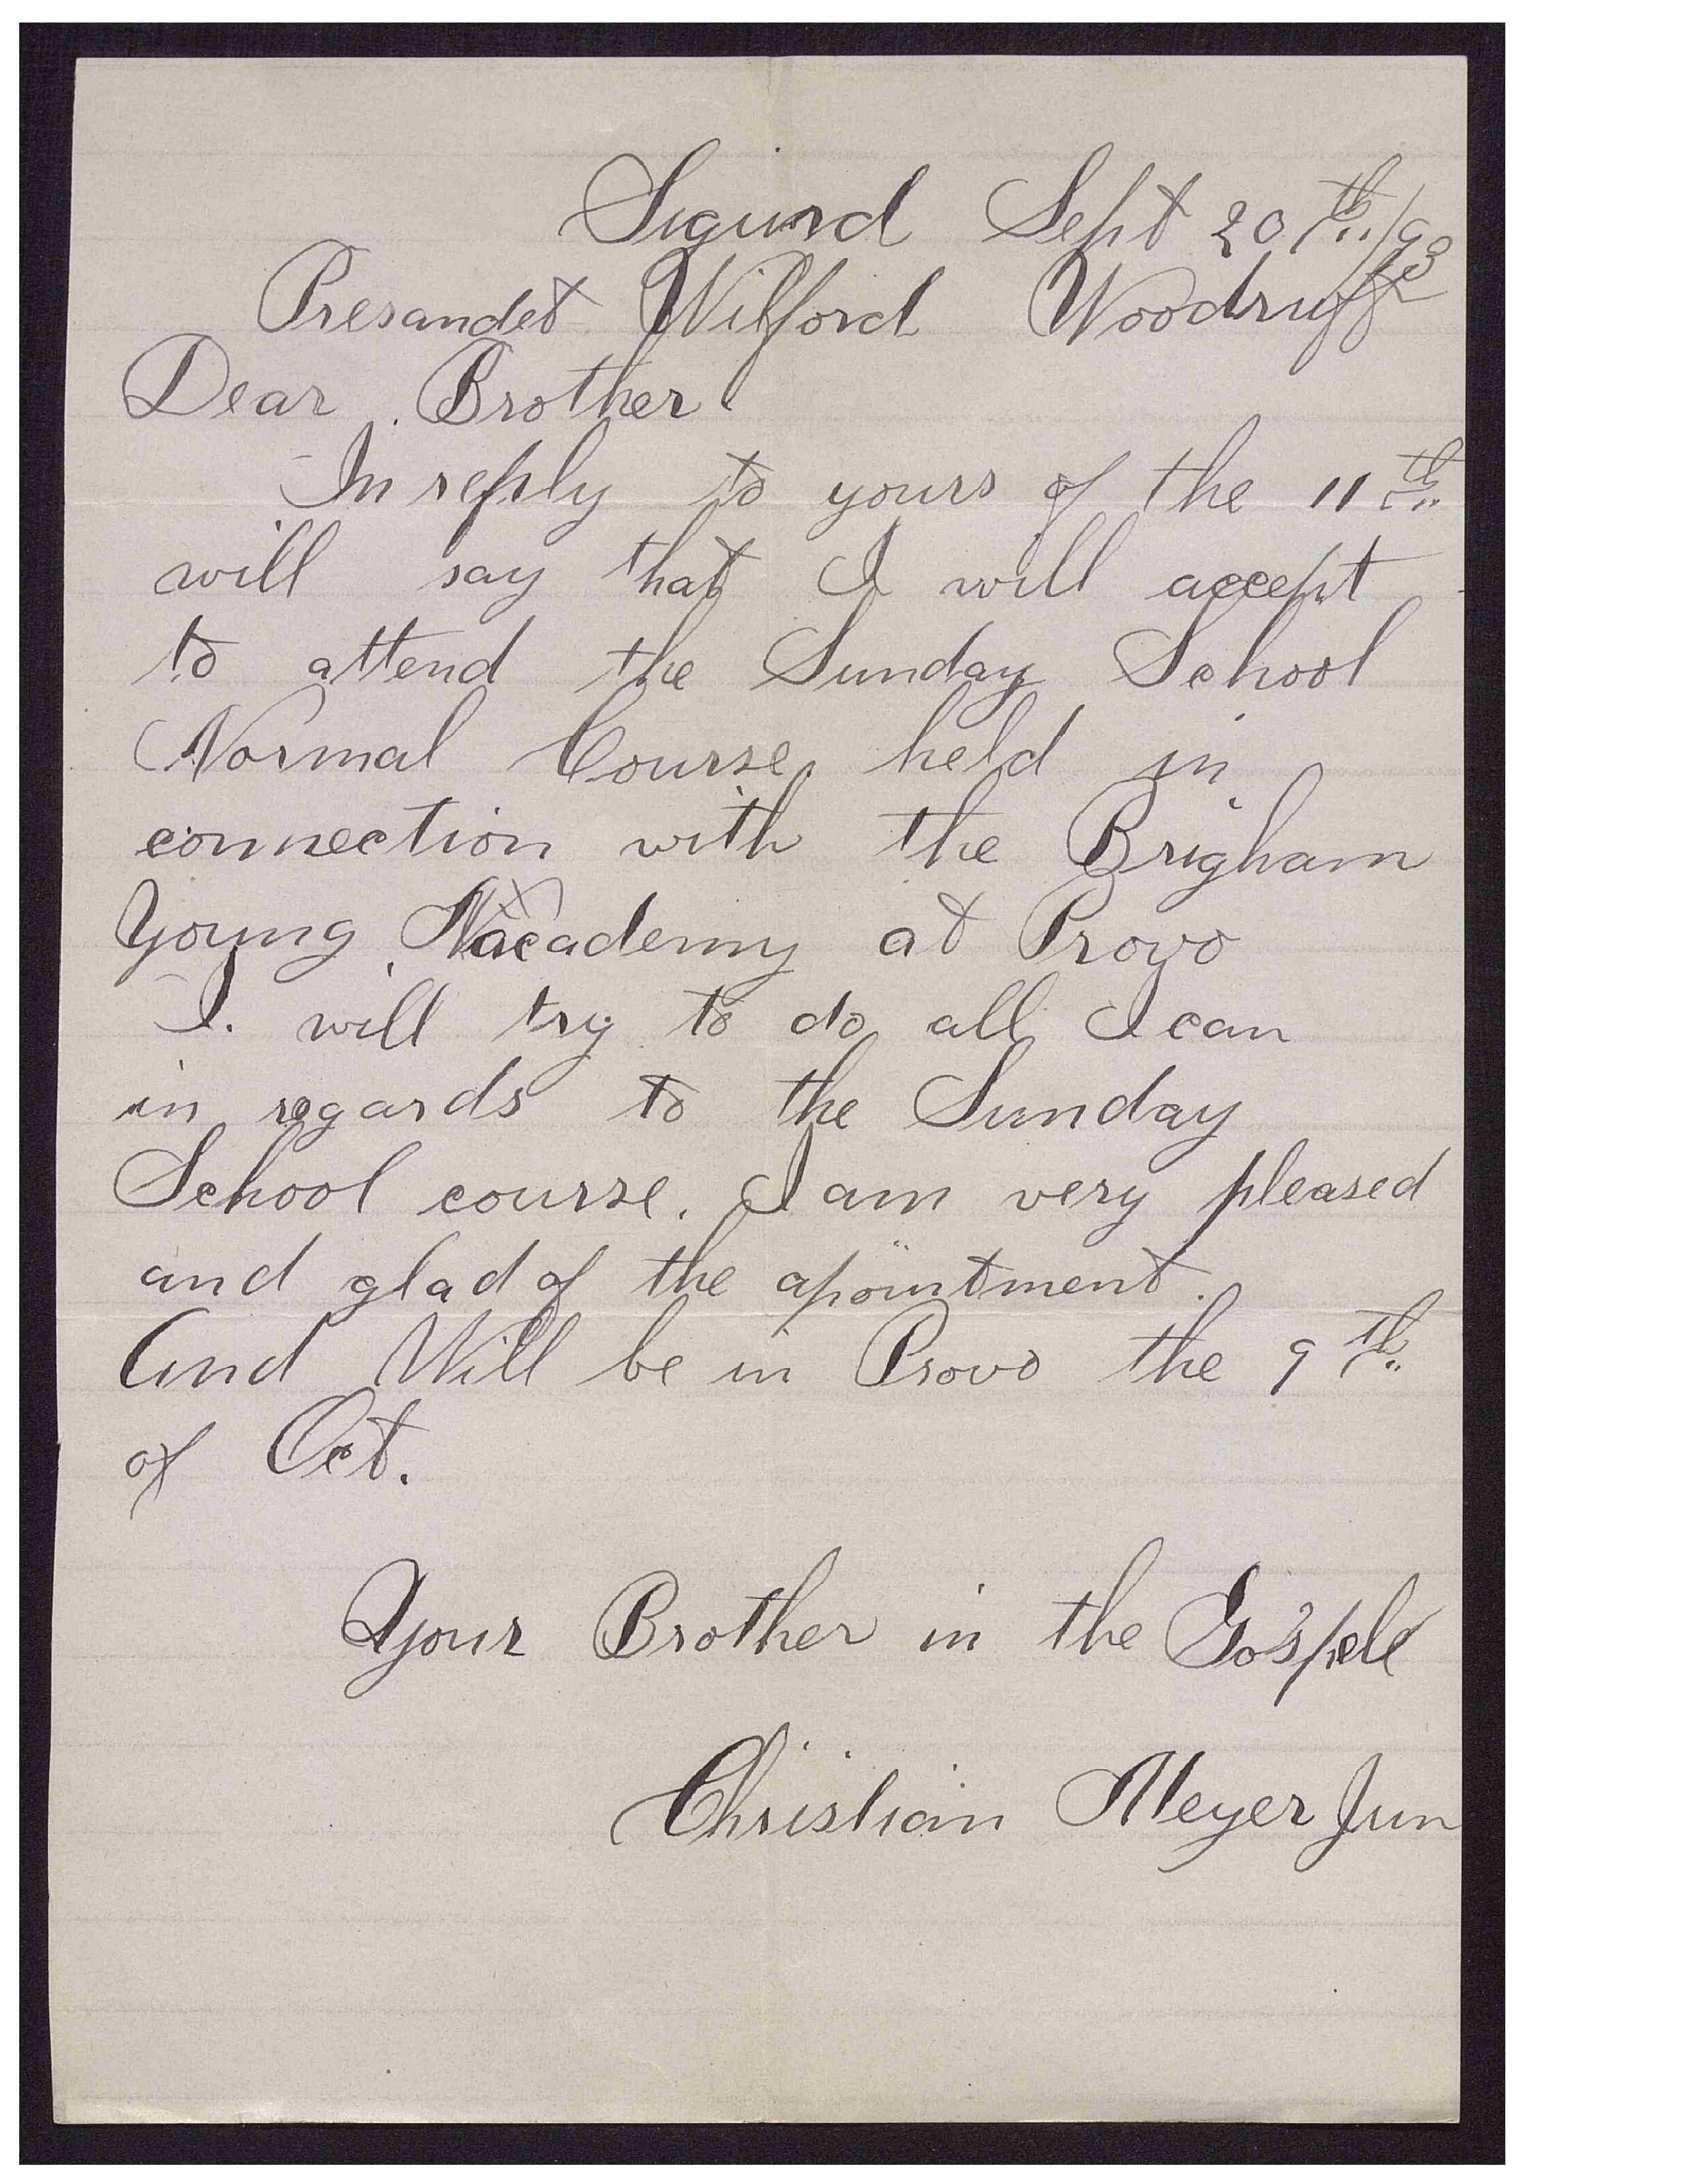 Sigurd Sept 20th/93
Presandet Wilford Woodruff
Dear Brother
In reply to yours of the 11th
will say that I will accept
to attend the Sunday School
Normal Course held in
connection with the Brigham
Young Academy at Provo
I. will try to do all I can
in regards to the Sunday
School course. I am very pleased
and glad of the apointment.
And Will be in Provo the 9th
of Oct.
Your Brother in the Gosple
Christian Meyer Jun